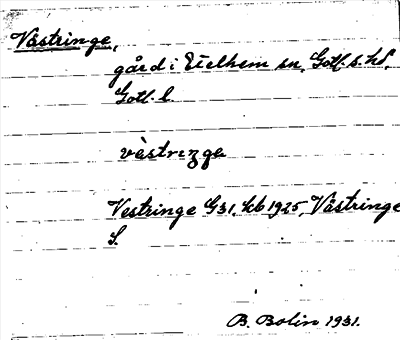 Västringe,
gård i Etelhem sn, Gotl. s. hd,
Gotl. l.
västringe
Vestringe G31, kb 1925, Västringe
S.
B. Bolin 1931.